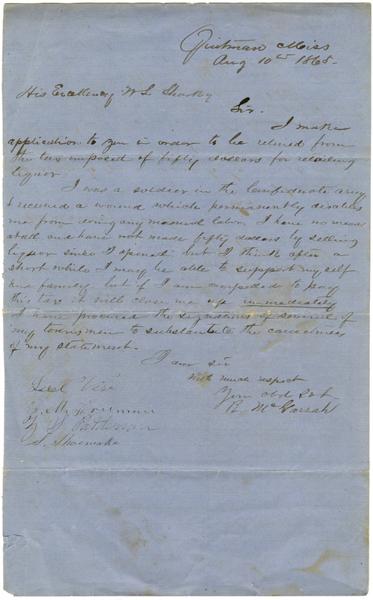 Quitman Miss
Aug 10th 1865.
His Excellency W L Sharkey
Sir.
I make
application to you in order to be relieved from
the tax imposed of fifty dollars for retailing
liquor
I was a soldier in the Confederate army
& received a wound which permanently disables
me from doing any manual labor. I have no means
atall and have not made fifty dollars by selling
liquor since I opened but I think after a
short while I may be able to support my self
and family but if I am compelled to pay
this tax it will close me up immediately
I have procured the signatures of several of
my townsmen to substantiate the correctness
of my statement.
I am sir
With much respect
Your obd Svt
R. Mc
S. Shoemake